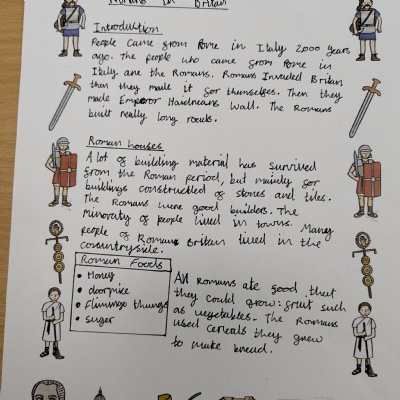 Romans in Britain
Introduction
People came from Rome in Italy 2000 years
ago. The people who came from Rome in
Italy are the Romans. Romans Invaded Britan
then they made it for themselves. Then they
made Emperor Haidneans Wall. The Romans
built really long roads.
Roman houses
A lot of building material has survived
from the Roman period, but mainly for
buildings constructed of stones and tiles.
The Romans were good builders. The
minority of people lived in towns. Many
people of Roman Britain lived in the
countryside.
Roman Foods
• Honey
• doormice
• Flamingo thungs
• suger
All Romans ate food that
they could grow: fruit such
as vegetables. The Romans
used cereals they grew
to make bread.